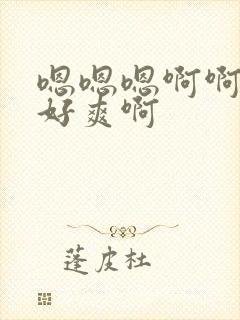 嗯嗯嗯啊啊
好爽啊
蓬皮杜